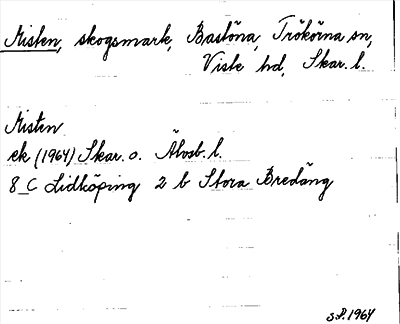 Misten, skogsmark, Bastöna, Trökörna sn,
Viste hd, Skar. l.
Misten
ek (1964) Skar. o. Älvsb. l.
8 C Lidköping 2 b Stora Bredäng
S.P. 1964